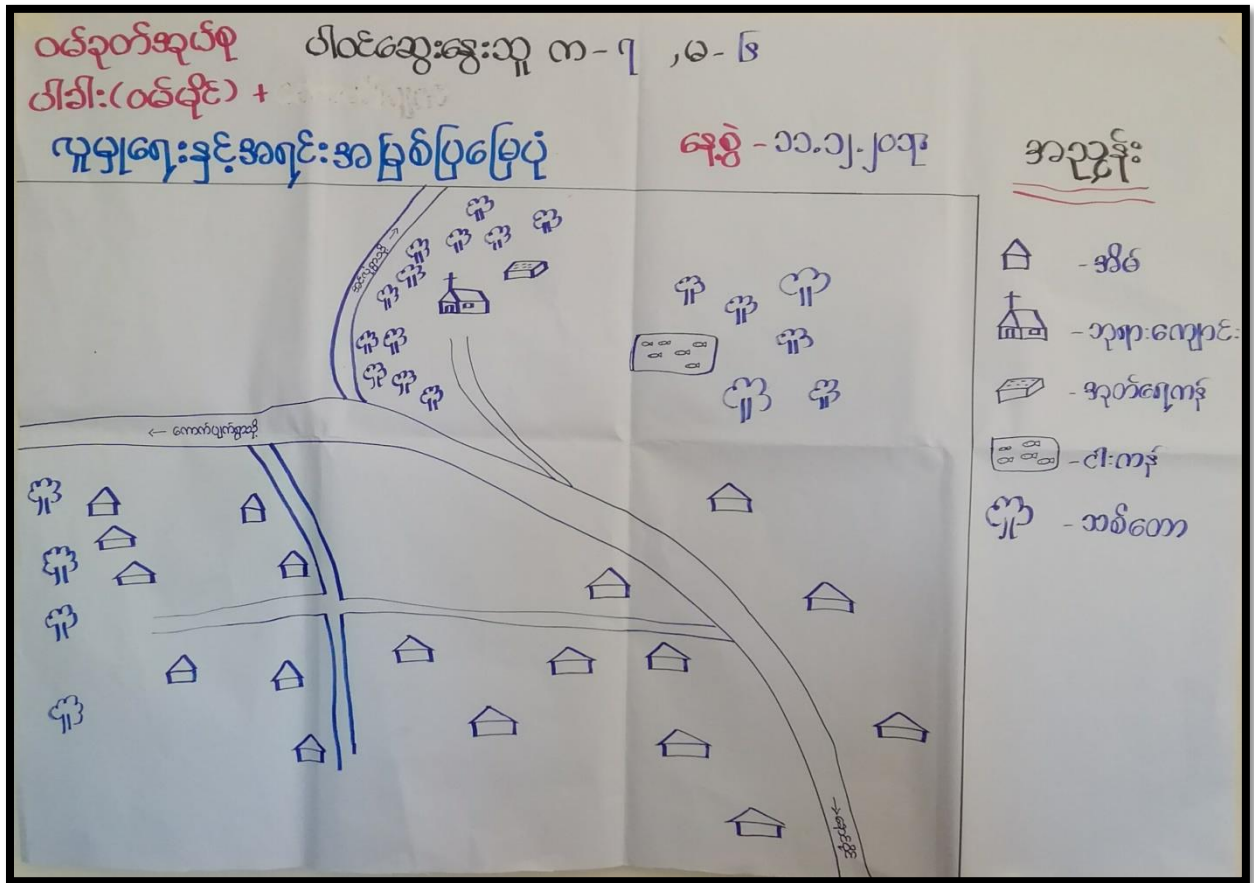 ဝမ်ခုတ်အုပ်စု ပါဝင်ဆွေးနွေးသူ က - ၇ ,မ -
ပါခါး(ဝမ်မိုင်) +
လူမှုရေးနှင့်အရင်းအမြစ်ပြမြေပုံ
နေ့စွဲ - ၁၁.၁၂.၂၀၁၉
အညွှန်း
- အိမ်
- ဘုရားကျောင်း
- အုတ်ရေကန်
- ငါးကန်
- သစ်တော
← ကောက်ပျက်ရွာသို့